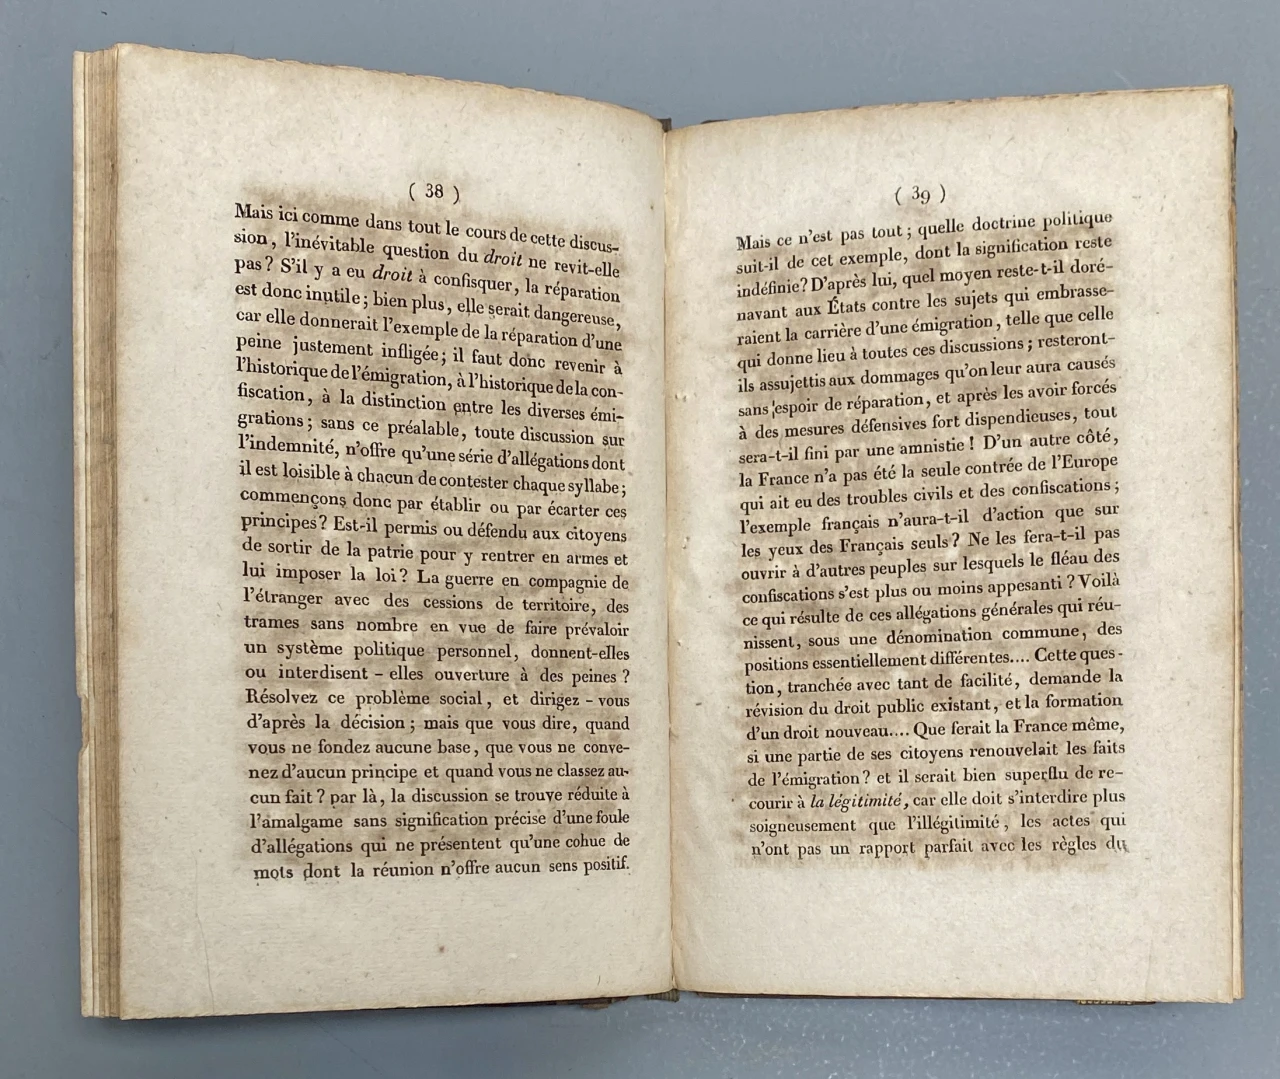 ( 38 )
Mais ici comme dans tout le cours de cette discus-
sion, l'inévitable question du droit ne revit-elle
pas? S'il y a eu droit à confisquer, la réparation
est donc inutile; bien plus, elle serait dangereuse,
car elle donnerait l'exemple de la réparation d'une
peine justement infligée; il faut donc revenir à
l'historique de l'émigration, à l'historique de la con-
fiscation, à la distinction entre les diverses émi-
grations; sans ce préalable, toute discussion sur
l'indemnité, n'offre qu'une série d'allégations dont
il est loisible à chacun de contester chaque syllabe;
commençons donc par établir ou par écarter ces
principes? Est-il permis ou défendu aux citoyens
de sortir de la patrie pour y rentrer en armes et
lui imposer la loi? La guerre en compagnie de
l'étranger avec des cessions de territoire, des
trames sans nombre en vue de faire prévaloir
un système politique personnel, donnent-elles
ou interdisent-elles ouverture à des peines?
Résolvez ce problème social, et dirigez-vous
d'après la décision; mais que vous dire, quand
vous ne fondez aucune base, que vous ne conve-
nez d'aucun principe et quand vous ne classez au-
cun fait? par là, la discussion se trouve réduite à
l'amalgame sans signification précise d'une foule
d'allégations qui ne présentent qu'une cohue de
mots dont la réunion n'offre aucun sens positif.
( 39 )
Mais ce n'est pas tout; quelle doctrine politique
suit-il de cet exemple, dont la signification reste
indéfinie? D'après lui, quel moyen reste-t-il doré-
navant aux États contre les sujets qui embrasse-
raient la carrière d'une émigration, telle que celle
qui donne lieu à toutes ces discussions; resteront-
ils assujettis aux dommages qu'on leur aura causés
sans espoir de réparation, et après les avoir forcés
à des mesures défensives fort dispendieuses, tout
sera-t-il fini par une amnistie! D'un autre côté,
la France n'a pas été la seule contrée de l'Europe
qui ait eu des troubles civils et des confiscations;
l'exemple français n'aura-t-il d'action que sur
les yeux des Français seuls? Ne les fera-t-il pas
ouvrir à d'autres peuples sur lesquels le fléau des
confiscations s'est plus ou moins appesanti? Voilà
ce qui résulte de ces allégations générales qui réu-
nissent, sous une dénomination commune, des
positions essentiellement différentes.... Cette ques-
tion, tranchée avec tant de facilité, demande la
révision du droit public existant, et la formation
d'un droit nouveau.... Que ferait la France même,
si une partie de ses citoyens renouvelait les faits
de l'émigration? et il serait bien superflu de re-
courir à la légitimité, car elle doit s'interdire plus
soigneusement que l'illégitimité, les actes qui
n'ont pas un rapport parfait avec les règles du